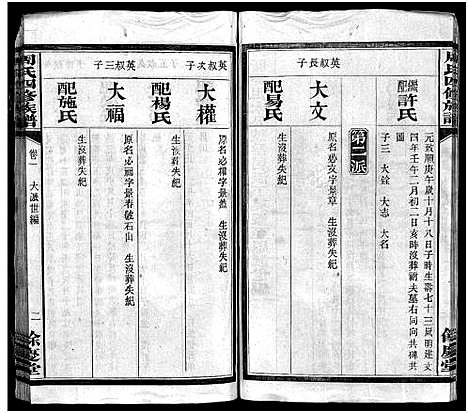 周氏四修族譜
繼配許氏
元致順庚午歲十月十八日子時生壽七十三歲明建文
四年壬午二月初二日亥時沒葬祔夫墓右同向共碑其
圖
子三 大 大志 大名
第二派
英叔長子
大文
原名必文字景章 生沒葬失紀
配易氏
生沒葬失紀
餘慶堂
英叔次子
大權
原名必權字景 生沒葬失紀
配楊氏
生沒葬失紀
英叔三子
大福
原名必福字景春 石山 生沒葬失紀
配施氏
生沒葬失紀
周氏四修族譜
卷二 大 世編
二
餘慶堂